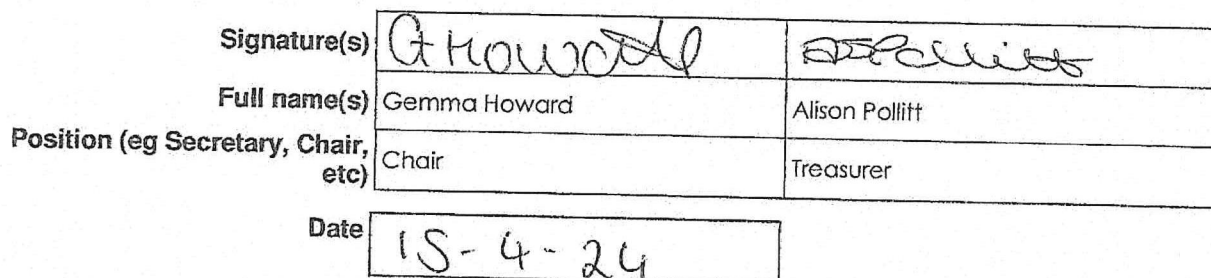 Signature(s) GHoward APollitt
Full name(s) Gemma Howard Alison Pollitt
Position (eg Secretary, Chair,
etc) Chair Treasurer
Date 15-4-24